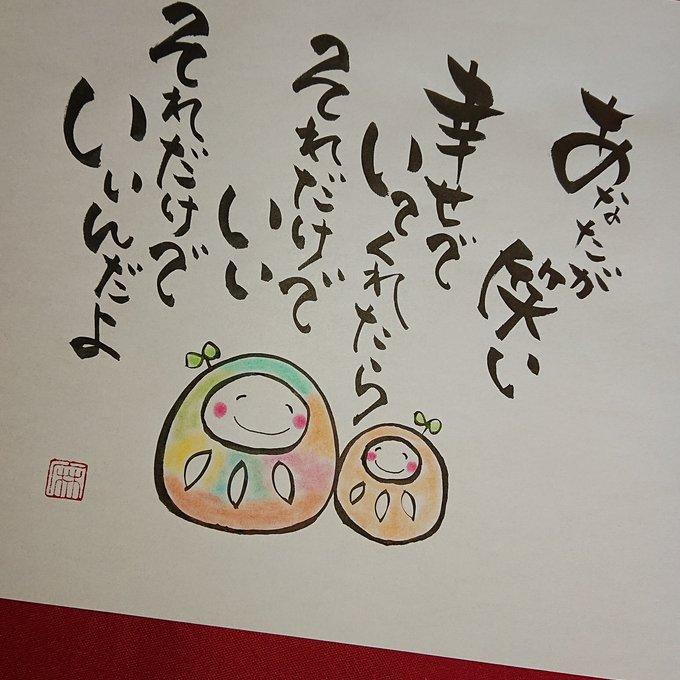 あなたが
笑い
幸せで
いてくれたら
それだけで
いい
それだけで
いいんだよ